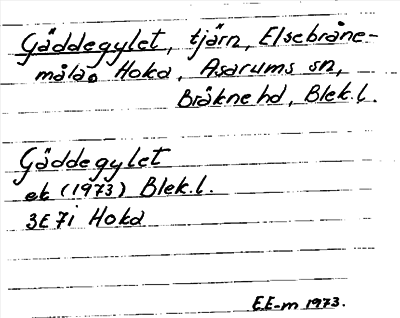 Gäddegylet, tjärn, Elsebråne-
måla. Hoka, Asarums sn,
Bräkne hd, Blek.l.
Gäddegylet
ek (1973) Blek.l.
3E7i Hoka
E.E-m 1973.